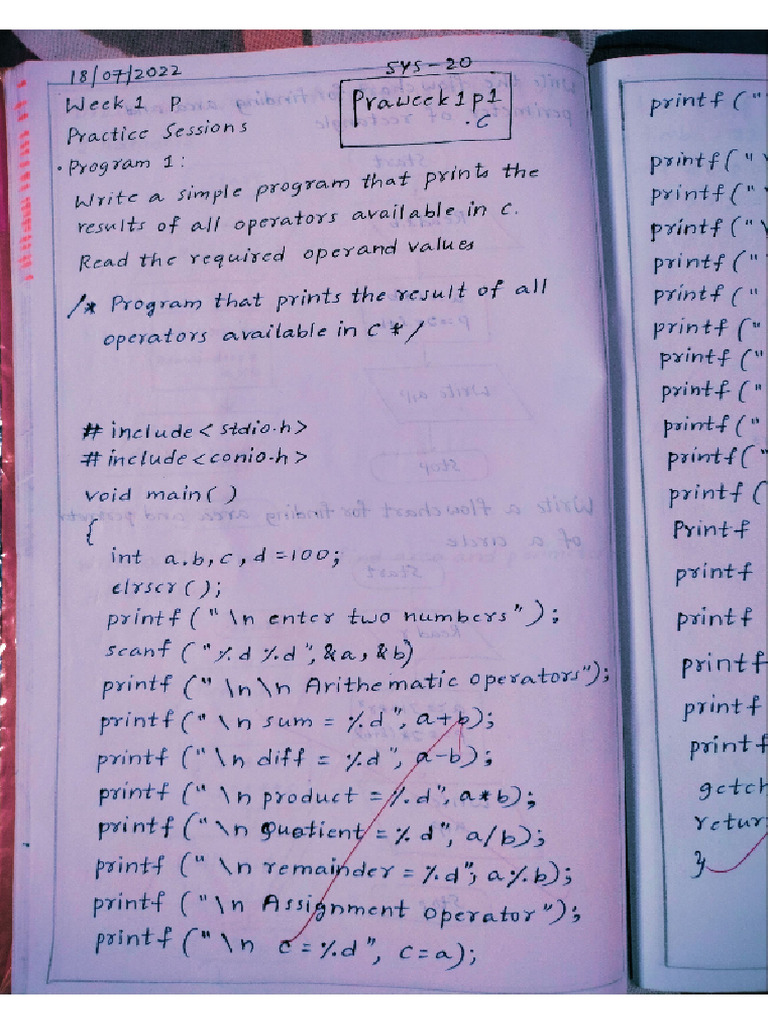 18/07/2022
SYS-20
Week 1 P
Praweek1p1
.C
Practice Sessions
Program 1:
Write a simple program that prints the
results of all operators available in C.
Read the required operand values
/* Program that prints the result of all
operators available in C */
#include<stdio.h>
#include<conio.h>
void main()
{
int a.b,c,d=100;
clrscr();
printf("\n enter two numbers");
scanf("%d %d",&a,&b)
printf("\n\n Arithematic operators");
printf("\n sum = %d", a+b);
printf("\n diff = %d", a-b);
printf("\n product = %.d", a*b);
printf("\n quotient = %d", a/b);
printf("\n remainder = %d", a%b);
printf("\n Assignment operator");
printf("\n c = %d", c=a);
printf("
printf("
printf("
printf("\
printf("
printf("
printf("
printf("
printf("
printf("
printf("
printf(
Printf
printf
printf
printf
printf
printf
getch
retur
}